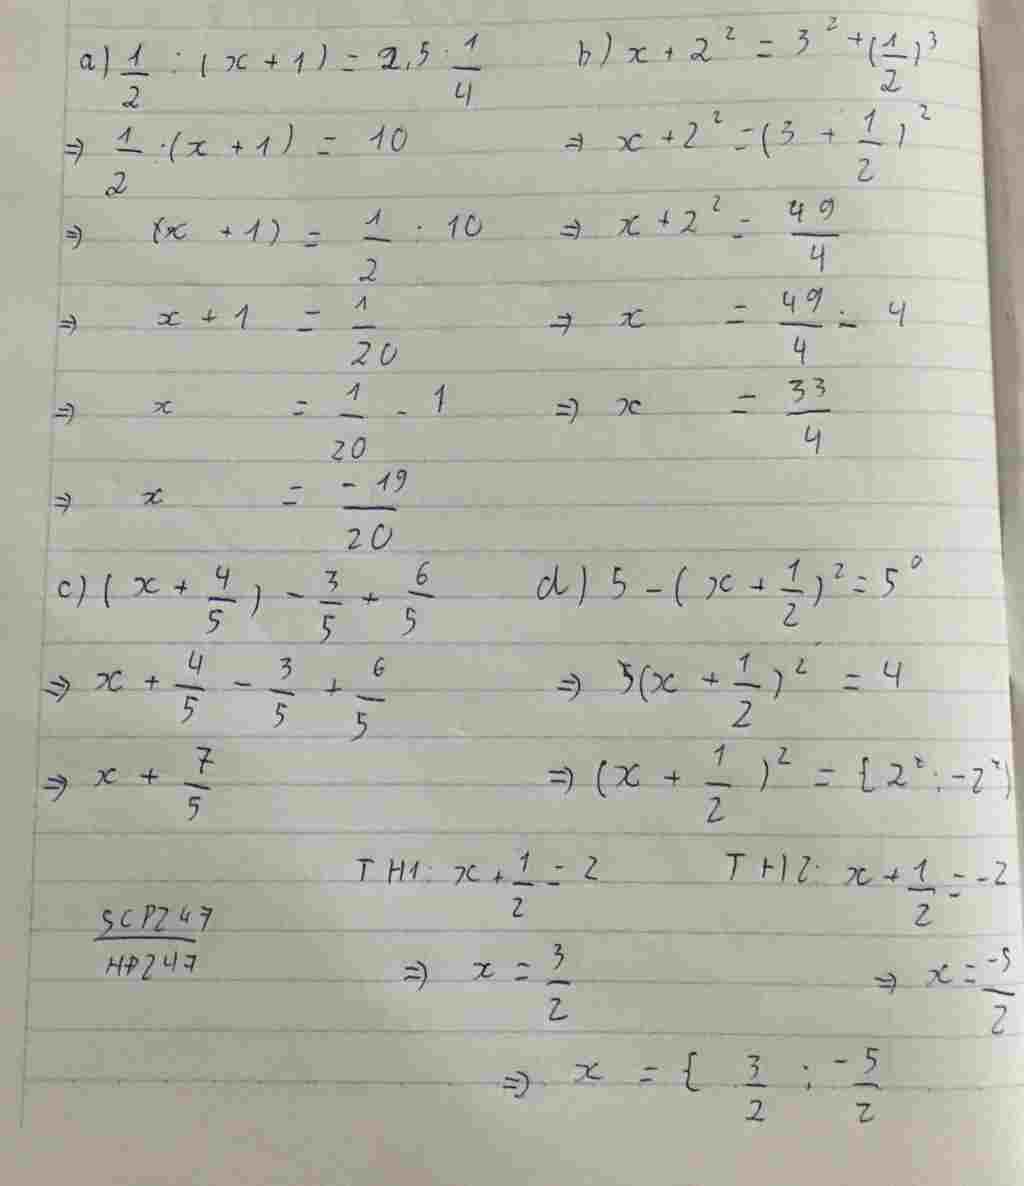 a) 1/2 : (x + 1) = 2,5 : 1/4
⇒ 1/2 : (x + 1) = 10
⇒ (x + 1) = 1/2 : 10
⇒ x + 1 = 1/20
⇒ x = 1/20 - 1
⇒ x = -19/20
b) x + 2² = 3² + (1/2)³
⇒ x + 2² = (3 + 1/2)²
⇒ x + 2² = 49/4
⇒ x = 49/4 - 4
⇒ x = 33/4
c) (x + 4/5) - 3/5 + 6/5
⇒ x + 4/5 - 3/5 + 6/5
⇒ x + 7/5
d) 5 - (x + 1/2)² = 5⁰
⇒ (x + 1/2)² = 4
⇒ (x + 1/2)² = {2² ; -2²}
TH1: x + 1/2 = 2
⇒ x = 3/2
TH2: x + 1/2 = -2
⇒ x = -5/2
⇒ x = { 3/2 ; -5/2
SCP247
HP247